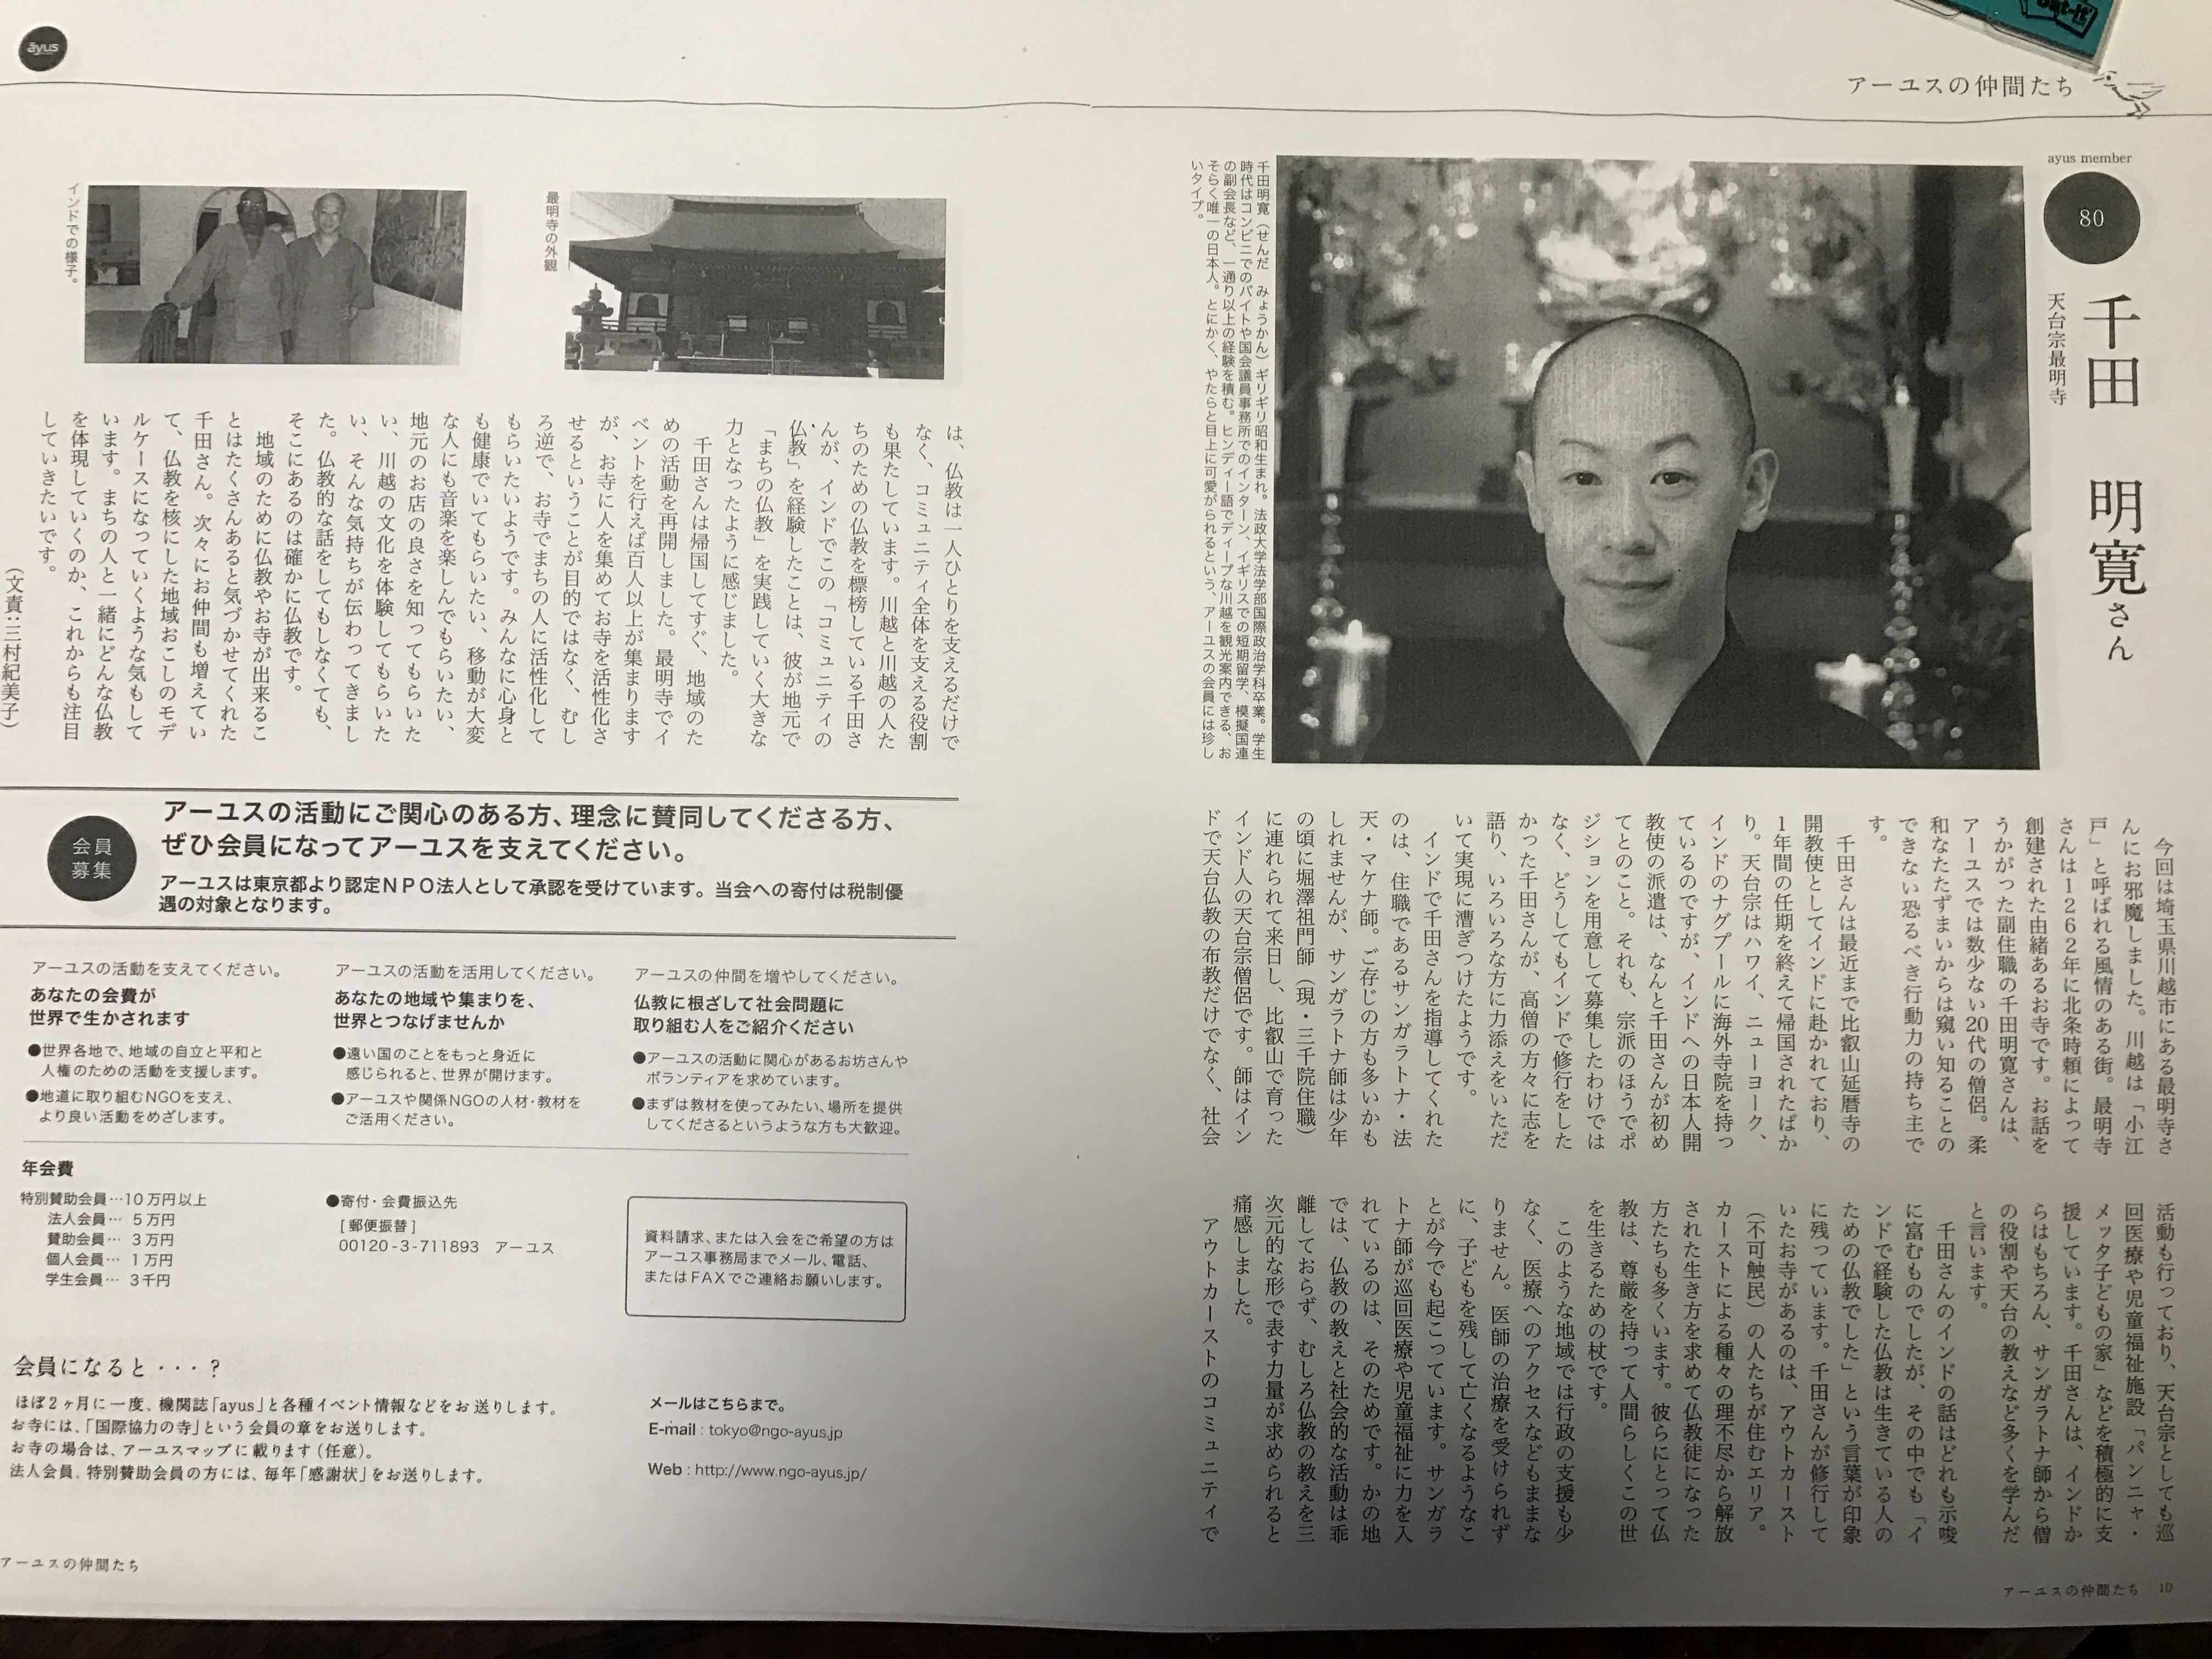 アーユスの仲間たち
ayus member
80
千田 明寛さん
天台宗最明寺
千田明寛(せんだ みょうかん)ギリギリ昭和生まれ。法政大学法学部国際政治学科卒業。学生
時代はコンビニでのバイトや国会議員事務所でのインターン、イギリスでの短期留学、模擬国連
の副会長など、一通り以上の経験を積む。ヒンディー語でディープな川越を観光案内できる、お
そらく唯一の日本人。とにかく、やたらと目上に可愛がられるという、アーユスの会員には珍し
いタイプ。
今回は埼玉県川越市にある最明寺さ
んにお邪魔しました。川越は「小江
戸」と呼ばれる風情のある街。最明寺
さんは1262年に北条時頼によって
創建された由緒あるお寺です。お話を
うかがった副住職の千田明寛さんは、
アーユスでは数少ない20代の僧侶。柔
和なたたずまいからは窺い知ることの
できない恐るべき行動力の持ち主で
す。
千田さんは最近まで比叡山延暦寺の
開教使としてインドに赴かれており、
1年間の任期を終えて帰国されたばか
り。天台宗はハワイ、ニューヨーク、
インドのナグプールに海外寺院を持っ
ているのですが、インドへの日本人開
教使の派遣は、なんと千田さんが初め
てとのこと。それも、宗派のほうでポ
ジションを用意して募集したわけでは
なく、どうしてもインドで修行をした
かった千田さんが、高僧の方々に志を
語り、いろいろな方に力添えをいただ
いて実現に漕ぎつけたようです。
インドで千田さんを指導してくれた
のは、住職であるサンガラトナ・法
天・マケナ師。ご存じの方も多いかも
しれませんが、サンガラトナ師は少年
の頃に堀澤祖門師(現・三千院住職)
に連れられて来日し、比叡山で育った
インド人の天台宗僧侶です。師はイン
ドで天台仏教の布教だけでなく、社会
活動も行っており、天台宗としても巡
回医療や児童福祉施設「パンニャ・
メッタ子どもの家」などを積極的に支
援しています。千田さんは、インドか
らはもちろん、サンガラトナ師から僧
の役割や天台の教えなど多くを学んだ
と言います。
千田さんのインドの話はどれも示唆
に富むものでしたが、その中でも「イ
ンドで経験した仏教は生きている人の
ための仏教でした」という言葉が印象
に残っています。千田さんが修行して
いたお寺があるのは、アウトカースト
(不可触民)の人たちが住むエリア。
カーストによる種々の理不尽から解放
された生き方を求めて仏教徒になった
方たちも多くいます。彼らにとって仏
教は、尊厳を持って人間らしくこの世
を生きるための杖です。
このような地域では行政の支援も少
なく、医療へのアクセスなどもままな
りません。医師の治療を受けられず
に、子どもを残して亡くなるようなこ
とが今でも起こっています。サンガラ
トナ師が巡回医療や児童福祉に力を入
れているのは、そのためです。かの地
では、仏教の教えと社会的な活動は乖
離しておらず、むしろ仏教の教えを三
次元的な形で表す力量が求められると
痛感しました。
アウトカーストのコミュニティで
アーユスの仲間たち 10
āyus
最明寺の外観
インドでの様子。
は、仏教は一人ひとりを支えるだけで
なく、コミュニティ全体を支える役割
も果たしています。川越と川越の人た
ちのための仏教を標榜している千田さ
んが、インドでこの「コミュニティの
仏教」を経験したことは、彼が地元で
「まちの仏教」を実践していく大きな
力となったように感じました。
千田さんは帰国してすぐ、地域のた
めの活動を再開しました。最明寺でイ
ベントを行えば百人以上が集まります
が、お寺に人を集めてお寺を活性化さ
せるということが目的ではなく、むし
ろ逆で、お寺でまちの人に活性化して
もらいたいようです。みんなに心身と
も健康でいてもらいたい、移動が大変
な人にも音楽を楽しんでもらいたい、
地元のお店の良さを知ってもらいた
い、川越の文化を体験してもらいた
い、そんな気持ちが伝わってきまし
た。仏教的な話をしてもしなくても、
そこにあるのは確かに仏教です。
地域のために仏教やお寺が出来るこ
とはたくさんあると気づかせてくれた
千田さん。次々にお仲間も増えてい
て、仏教を核にした地域おこしのモデ
ルケースになっていくような気もして
います。まちの人と一緒にどんな仏教
を体現していくのか、これからも注目
していきたいです。
(文責:三村紀美子)
会員
募集
アーユスの活動にご関心のある方、理念に賛同してくださる方、
ぜひ会員になってアーユスを支えてください。
アーユスは東京都より認定NPO法人として承認を受けています。当会への寄付は税制優
遇の対象となります。
アーユスの活動を支えてください。
あなたの会費が
世界で生かされます
●世界各地で、地域の自立と平和と
人権のための活動を支援します。
●地道に取り組むNGOを支え、
より良い活動をめざします。
アーユスの活動を活用してください。
あなたの地域や集まりを、
世界とつなげませんか
●遠い国のことをもっと身近に
感じられると、世界が開けます。
●アーユスや関係NGOの人材・教材を
ご活用ください。
アーユスの仲間を増やしてください。
仏教に根ざして社会問題に
取り組む人をご紹介ください
●アーユスの活動に関心があるお坊さんや
ボランティアを求めています。
●まずは教材を使ってみたい、場所を提供
してくださるというような方も大歓迎。
年会費
特別賛助会員…10万円以上
法人会員… 5万円
賛助会員… 3万円
個人会員… 1万円
学生会員… 3千円
●寄付・会費振込先
[郵便振替]
00120-3-711893 アーユス
資料請求、または入会をご希望の方は
アーユス事務局までメール、電話、
またはFAXでご連絡お願いします。
会員になると・・・?
ほぼ2ヶ月に一度、機関誌「ayus」と各種イベント情報などをお送りします。
お寺には、「国際協力の寺」という会員の章をお送りします。
お寺の場合は、アーユスマップに載ります(任意)。
法人会員、特別賛助会員の方には、毎年「感謝状」をお送りします。
メールはこちらまで。
E-mail : tokyo@ngo-ayus.jp
Web : http://www.ngo-ayus.jp/
アーユスの仲間たち